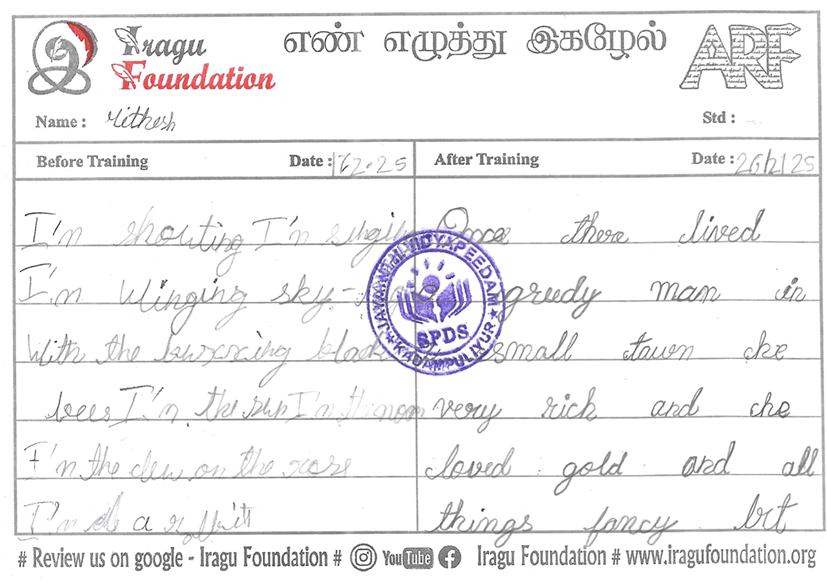 Iragu
Foundation
எண் எழுத்து இகழேல்
ARF
Name : Rithesh
Std :
Before Training Date : 17.2.25
After Training Date : 26/2/25
I'm shouting I'm singing
I'm winging sky-
With the buzzing black
bees I'm the sun I'm the moon
I'm the dew on the rose
I'm a rabbit
Once there lived
greedy man in
small town he
very rich and he
loved gold and all
things fancy but
JAYAWNTHI VIDYAPEEDAM
SPDS
KADAMPULIYUR
# Review us on google - Iragu Foundation # You Tube Iragu Foundation # www.iragufoundation.org